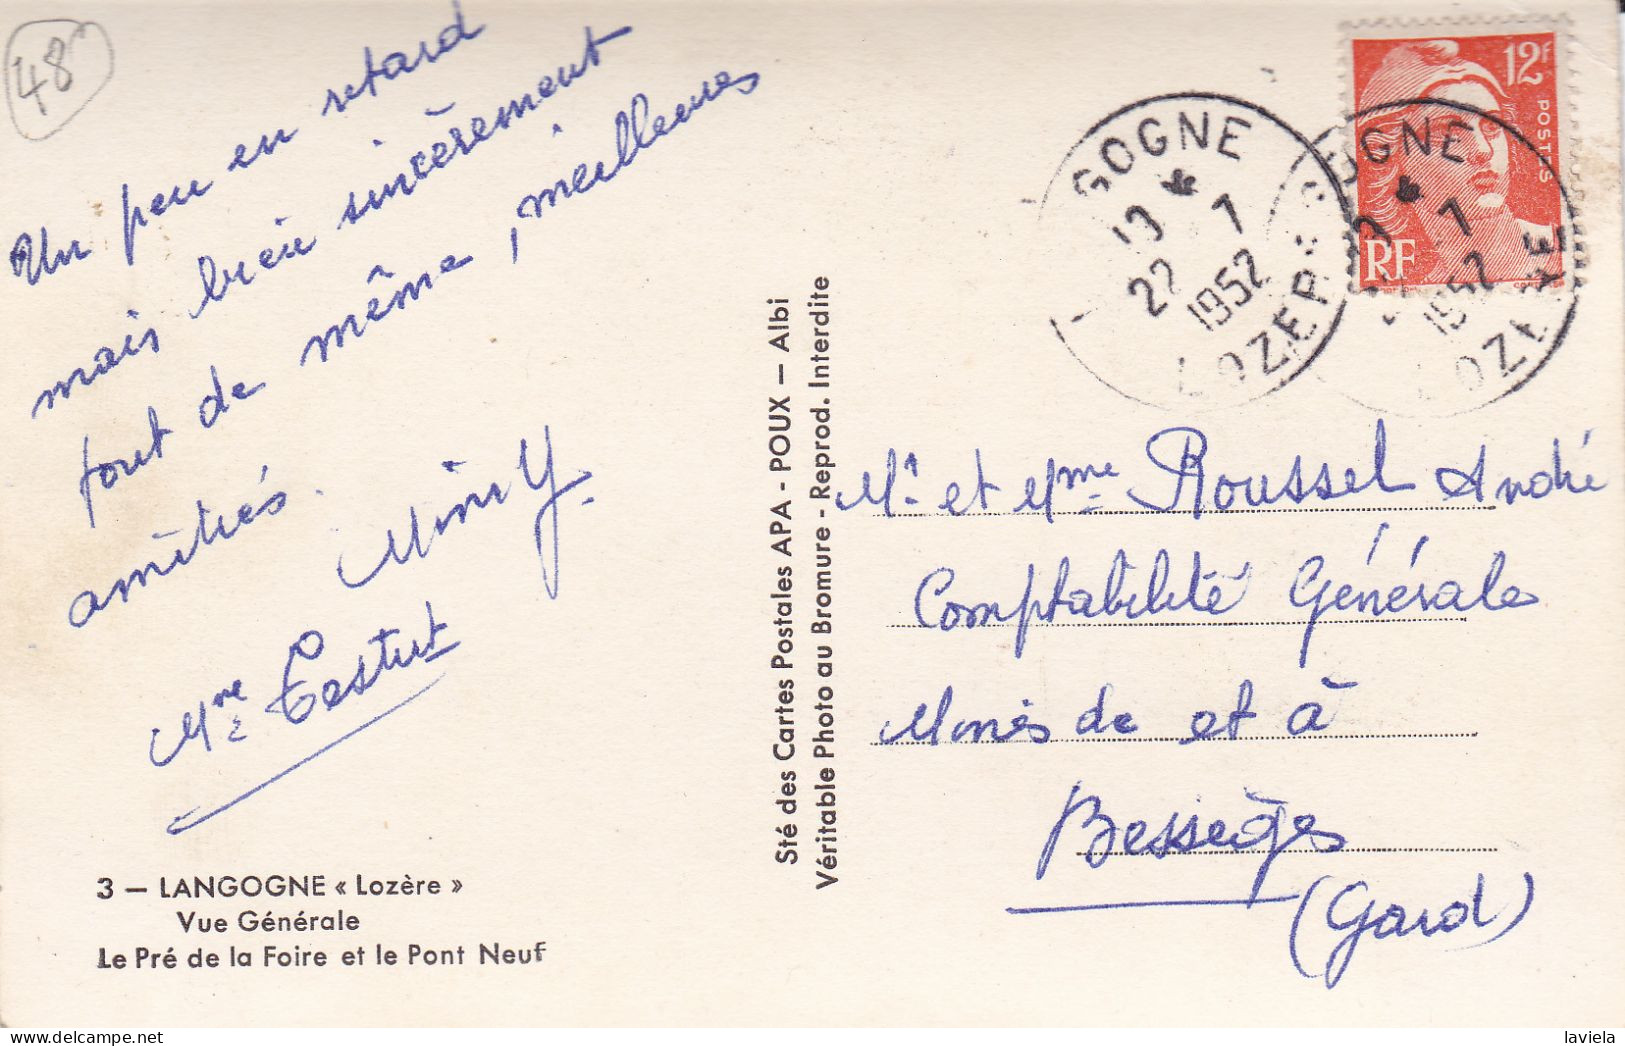 48
Un peu en retard
mais bien sincèrement
tout de même, meilleures
amitiés.
Mme Testut
3 — LANGOGNE « Lozère »
Vue Générale
Le Pré de la Foire et le Pont Neuf
Sté des Cartes Postales APA - POUX — Albi
Véritable Photo au Bromure - Reprod. Interdite
12F
POSTES
RF
GOGNE
22 7
1952
LOZERE
OGNE
7
1952
OZERE
Mr et Mme Roussel André
Comptabilité Générale
Mines de et à
Bessèges
(Gard)
laviela